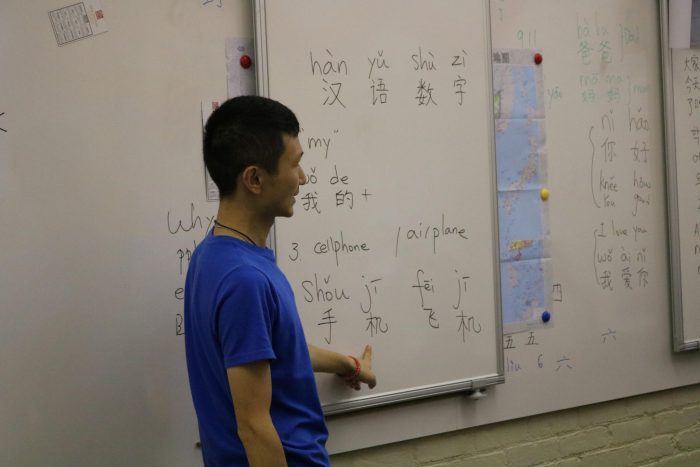 hàn yǔ shù zì
汉 语 数 字
"my"
wǒ de
我 的 +
3. cellphone / airplane
shǒu jī fēi jī
手 机 飞 机
Why
911
bà ba
爸 爸
mā ma
妈 妈
nǐ hǎo
你 好
knee how
You good
I love you
wǒ ài nǐ
我 爱 你
四
五 五 六
liu 6 六
大家